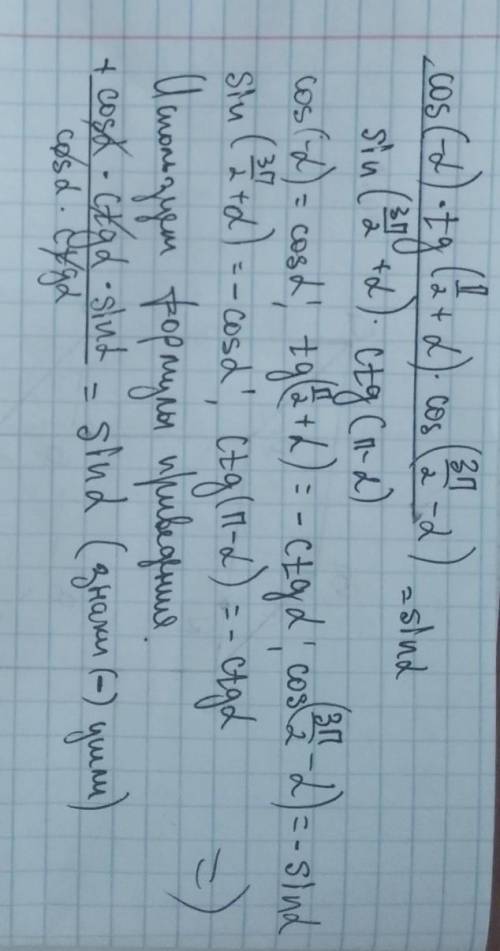 cos(-α)·tg(π/2 + α)·cos(3π/2 - α)
sin(3π/2 + α)·ctg(π-α) = sinα
cos(-α) = cosα; tg(π/2 + α) = - ctgα; cos(3π/2 - α) = - sinα
sin(3π/2 + α) = - cosα; ctg(π-α) = - ctgα
Используем формулы приведения. =)
+ cosα · ctgα · sinα
cosα · ctgα = sinα (знаки (-) ушли)